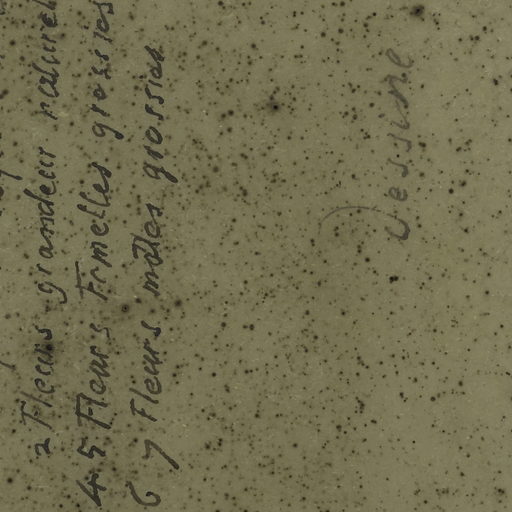 2 Fleurs grandeur naturel
4 5 Fleurs Femelles grossies
6 7 Fleurs mâles grossies
Dessiné